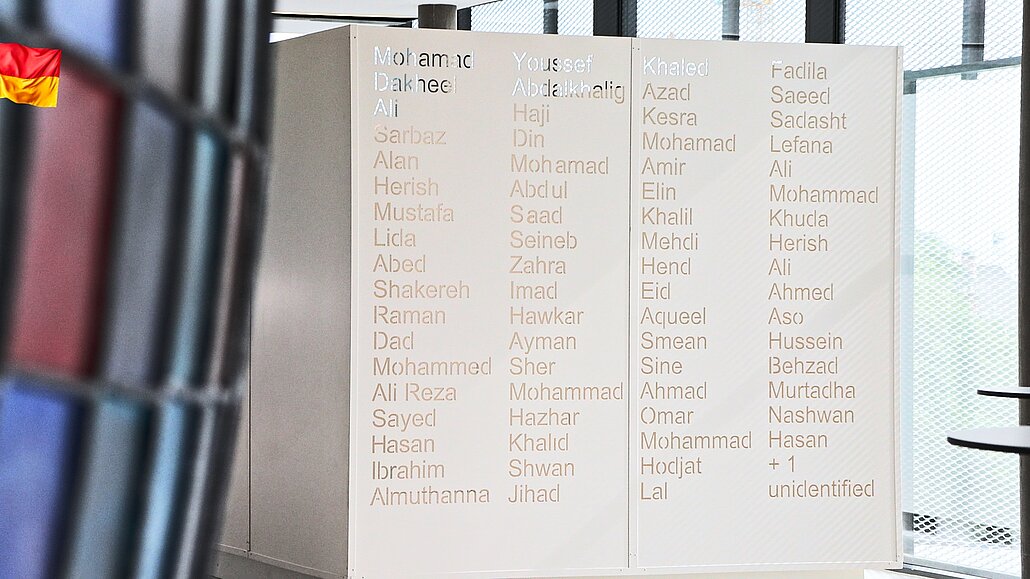 Mohamad
Dakheel
Ali
Sarbaz
Alan
Herish
Mustafa
Lida
Abed
Shakereh
Raman
Dad
Mohammed
Ali Reza
Sayed
Hasan
Ibrahim
Almuthanna
Youssef
Abdalkhalig
Haji
Din
Mohamad
Abdul
Saad
Seineb
Zahra
Imad
Hawkar
Ayman
Sher
Mohammad
Hazhar
Khalid
Shwan
Jihad
Khaled
Azad
Kesra
Mohamad
Amir
Elin
Khalil
Mehdi
Hend
Eid
Aqueel
Smean
Sine
Ahmad
Omar
Mohammad
Hodjat
Lal
Fadila
Saeed
Sadasht
Lefana
Ali
Mohammad
Khuda
Herish
Ali
Ahmed
Aso
Hussein
Behzad
Murtadha
Nashwan
Hasan
+ 1
unidentified